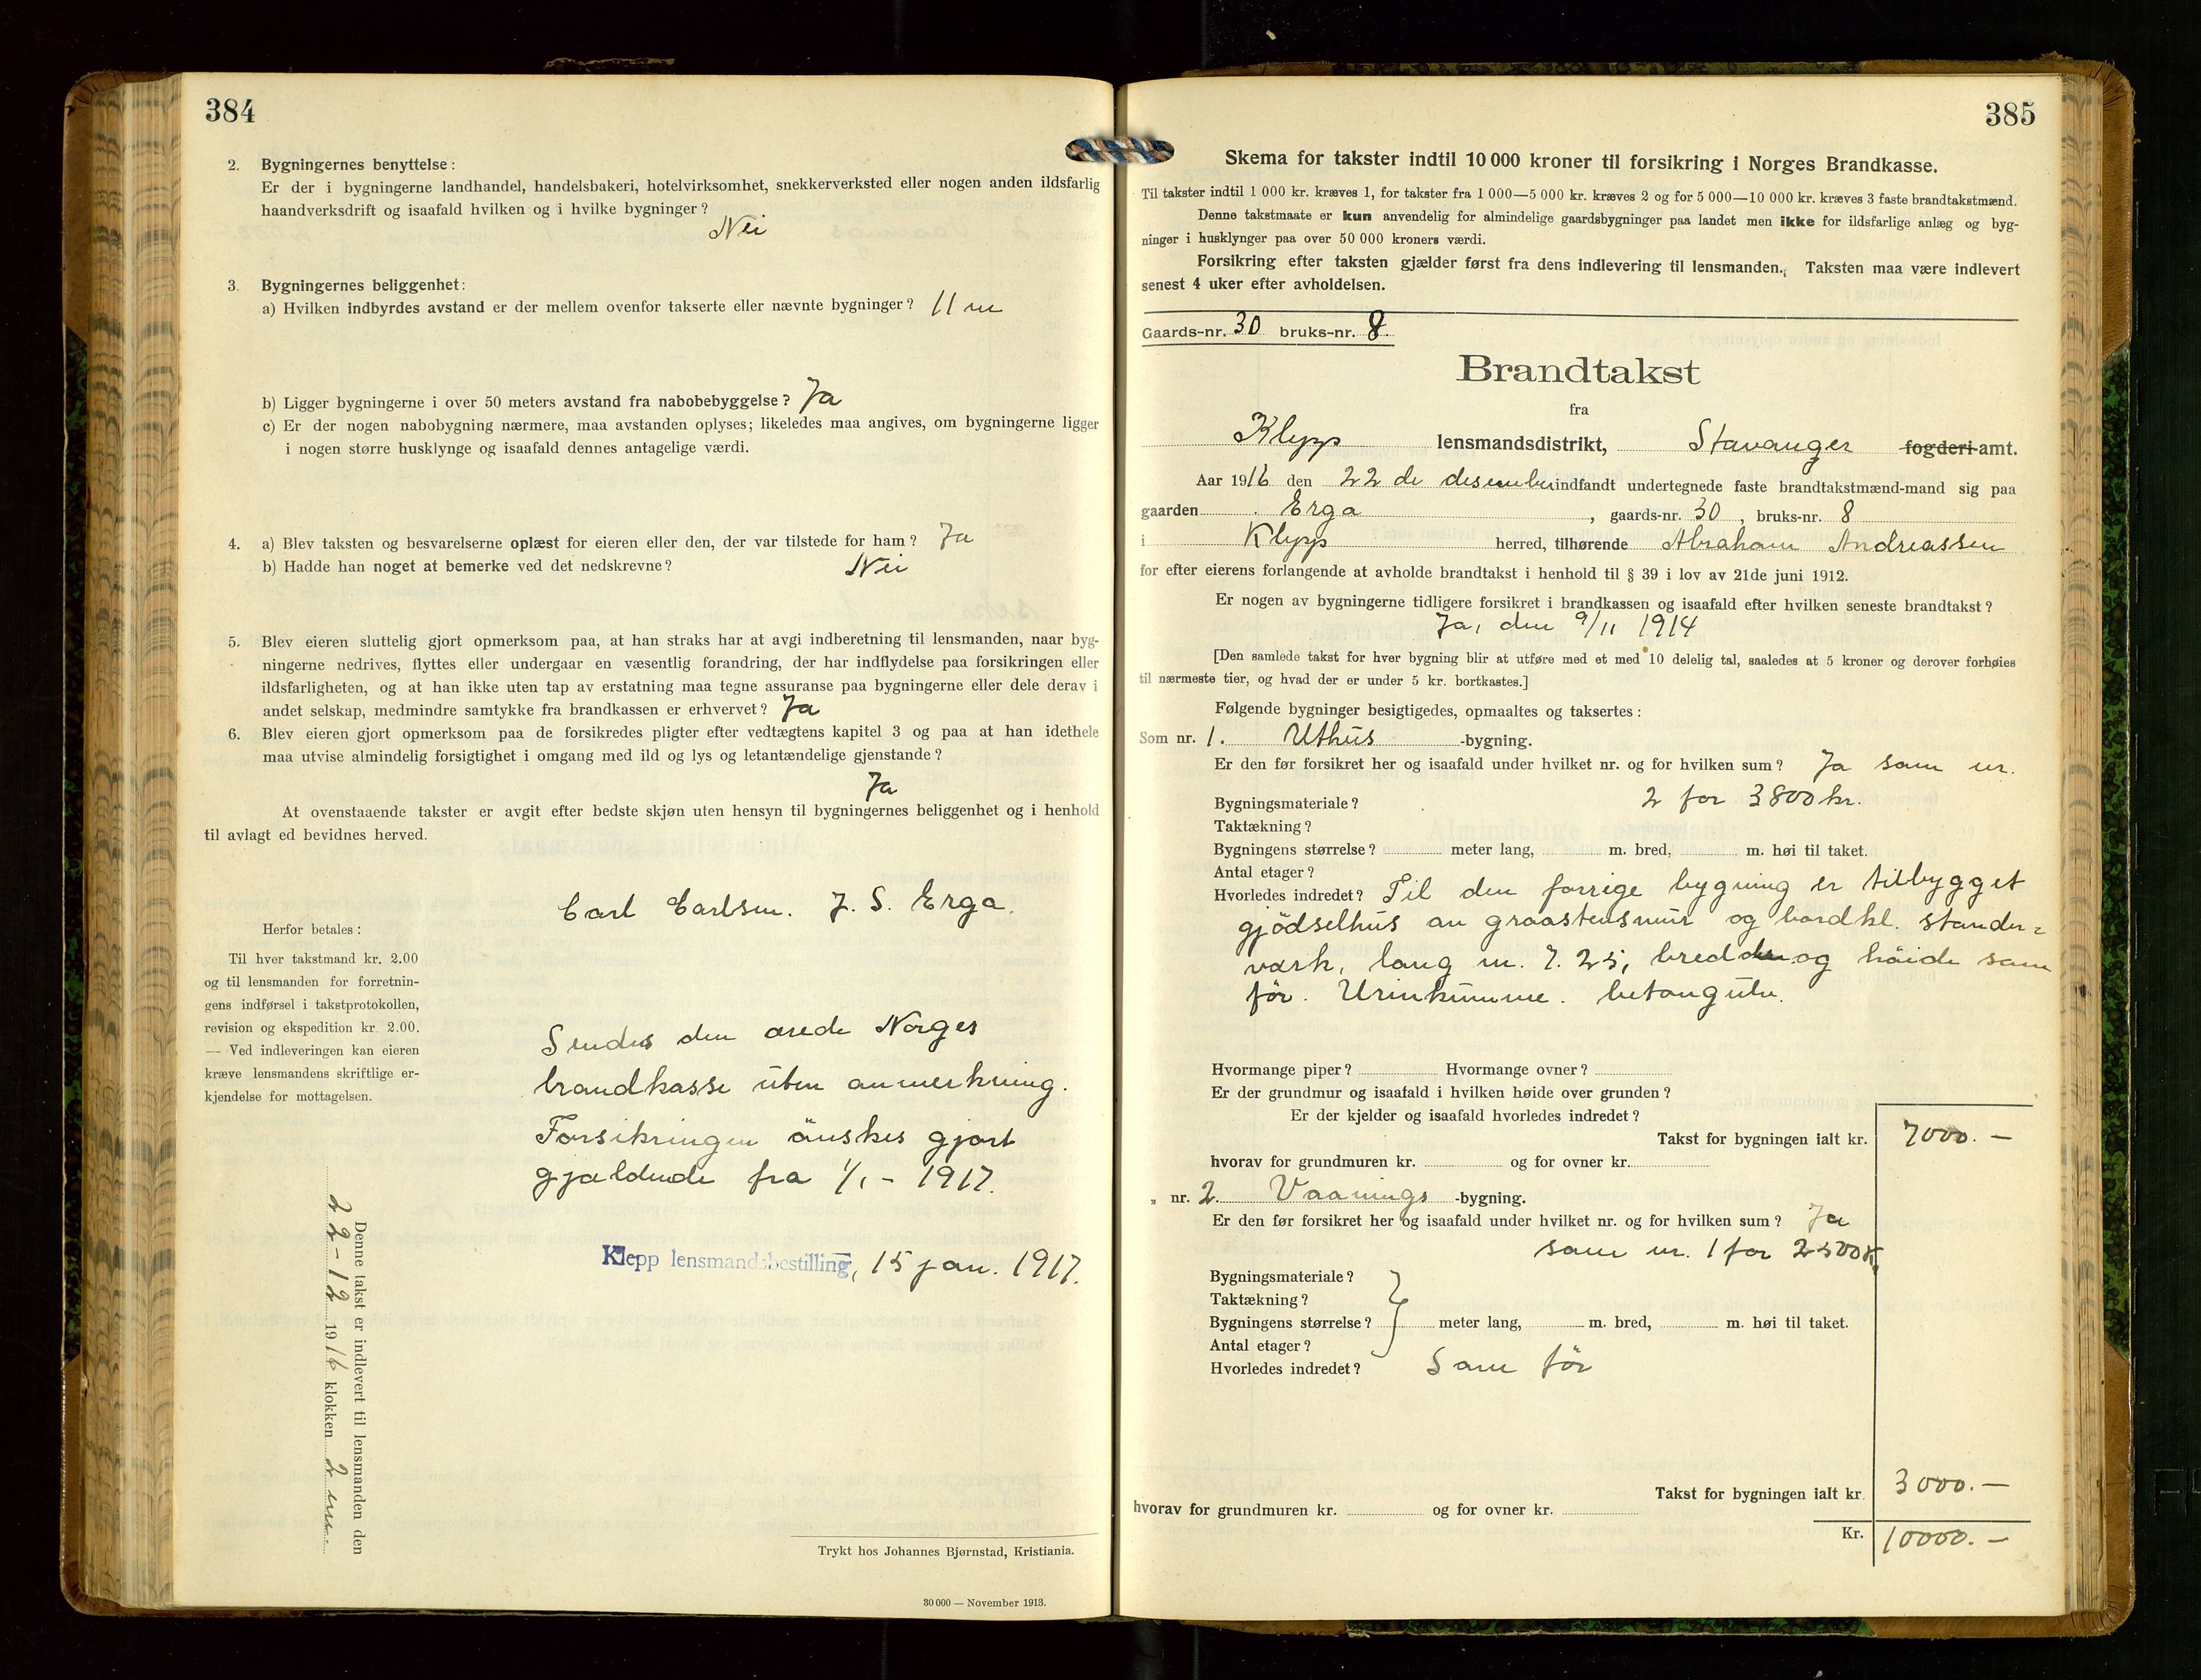 384
2. Bygningernes benyttelse:
Er der i bygningerne landhandel, handelsbakeri, hotelvirksomhet, snekkerverksted eller nogen anden ildsfarlig
haandverksdrift og isaafald hvilken og i hvilke bygninger?
Nei
3. Bygningernes beliggenhet:
a) Hvilken indbyrdes avstand er der mellem ovenfor takserte eller nævnte bygninger? 11 m
b) Ligger bygningerne i over 50 meters avstand fra nabobebyggelse? Ja
c) Er der nogen nabobygning nærmere, maa avstanden oplyses; likeledes maa angives, om bygningerne ligger
i nogen større husklynge og isaafald dennes antagelige værdi.
4. a) Blev taksten og besvarelserne oplæst for eieren eller den, der var tilstede for ham? Ja
b) Hadde han noget at bemerke ved det nedskrevne? Nei
5. Blev eieren sluttelig gjort opmerksom paa, at han straks har at avgi indberetning til lensmanden, naar byg-
ningerne nedrives, flyttes eller undergaar en væsentlig forandring, der har indflydelse paa forsikringen eller
ildsfarligheten, og at han ikke uten tap av erstatning maa tegne assuranse paa bygningerne eller dele derav i
andet selskap, medmindre samtykke fra brandkassen er erhvervet? Ja
6. Blev eieren gjort opmerksom paa de forsikredes pligter efter vedtægtens kapitel 3 og paa at han idethele
maa utvise almindelig forsigtighet i omgang med ild og lys og letantændelige gjenstande?
Ja
At ovenstaaende takster er avgit efter bedste skjøn uten hensyn til bygningernes beliggenhet og i henhold
til avlagt ed bevidnes herved.
Carl Carlsen. J. S. Erga.
Herfor betales:
Til hver takstmand kr. 2.00
og til lensmanden for forretnin-
gens indførsel i takstprotokollen,
revision og ekspedition kr. 2.00.
— Ved indleveringen kan eieren
kræve lensmandens skriftlige er-
kjendelse for mottagelsen.
Sendes den ærede Norges
brandkasse uten anmerkning.
Forsikringen önskes gjort
gjældende fra 1/1 - 1917.
Klepp lensmandsbestilling, 15 jan. 1917.
Denne takst er indlevert til lensmanden den
22-12 1916 klokken 2 em.
Trykt hos Johannes Bjørnstad, Kristiania.
30 000 — November 1913.
385
Skema for takster indtil 10 000 kroner til forsikring i Norges Brandkasse.
Til takster indtil 1 000 kr. kræves 1, for takster fra 1 000—5 000 kr. kræves 2 og for 5 000—10 000 kr. kræves 3 faste brandtakstmænd.
Denne takstmaate er kun anvendelig for almindelige gaardsbygninger paa landet men ikke for ildsfarlige anlæg og byg-
ninger i husklynger paa over 50 000 kroners værdi.
Forsikring efter taksten gjælder først fra dens indlevering til lensmanden. Taksten maa være indlevert
senest 4 uker efter avholdelsen.
Gaards-nr. 30 bruks-nr. 8
Brandtakst
fra
Klepp lensmandsdistrikt, Stavanger fogderi-amt.
Aar 1916 den 22 de desember indfandt undertegnede faste brandtakstmænd-mand sig paa
gaarden Erga, gaards-nr. 30, bruks-nr. 8
i Klepp herred, tilhørende Abraham Andreassen
for efter eierens forlangende at avholde brandtakst i henhold til § 39 i lov av 21de juni 1912.
Er nogen av bygningerne tidligere forsikret i brandkassen og isaafald efter hvilken seneste brandtakst?
Ja, den 9/11 1914
[Den samlede takst for hver bygning blir at utføre med et med 10 delelig tal, saaledes at 5 kroner og derover forhøies
til nærmeste tier, og hvad der er under 5 kr. bortkastes.]
Følgende bygninger besigtigedes, opmaaltes og taksertes:
Som nr. 1. Uthus -bygning.
Er den før forsikret her og isaafald under hvilket nr. og for hvilken sum? Ja som nr.
Bygningsmateriale? 2 for 3800 kr.
Taktækning?
Bygningens størrelse? meter lang, m. bred, m. høi til taket.
Antal etager?
Hvorledes indredet? Til den forrige bygning er tilbygget
gjödselhus av graastensmur og bordkl. stander=
værk, lang m. 7.25, bredde og höide som
för. Urinkumme. betongulv.
Hvormange piper? Hvormange ovner?
Er der grundmur og isaafald i hvilken høide over grunden?
Er der kjelder og isaafald hvorledes indredet?
Takst for bygningen ialt kr. 7000.—
hvorav for grundmuren kr. og for ovner kr.
„ nr. 2. Vaanings -bygning.
Er den før forsikret her og isaafald under hvilket nr. og for hvilken sum? Ja
som nr. 1 for 2500 k.
Bygningsmateriale?
Taktækning?
Bygningens størrelse? meter lang, m. bred, m. høi til taket.
Antal etager?
Hvorledes indredet? Som för
Takst for bygningen ialt kr. 3000.—
hvorav for grundmuren kr. og for ovner kr.
Kr. 10000.—